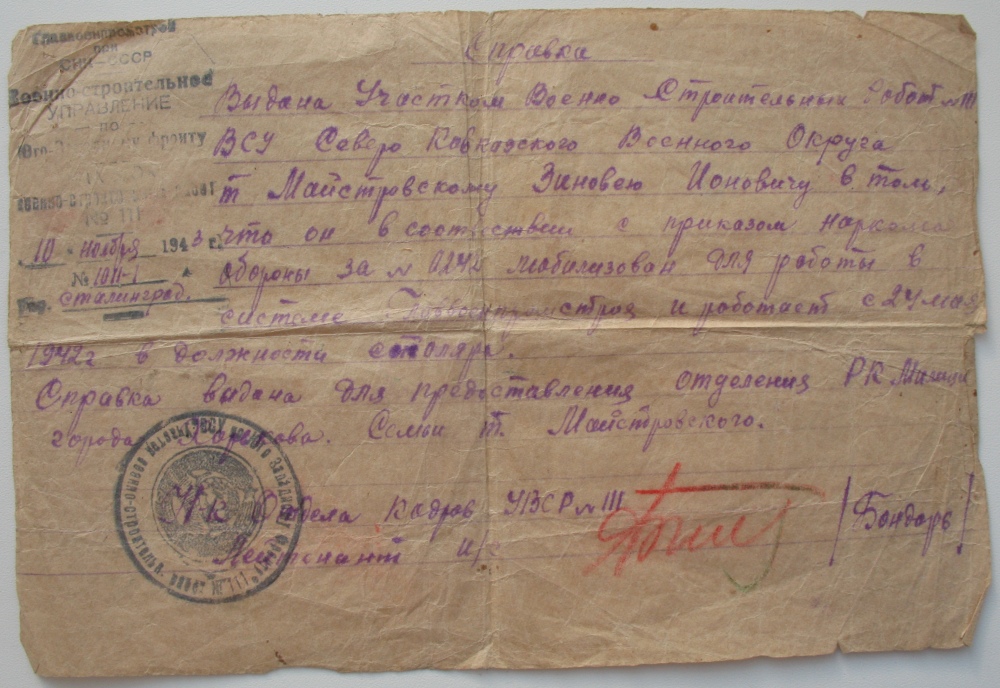 Главвоенпромстрой
при
СНК-СССР
Военно-строительное
УПРАВЛЕНИЕ
по
Юго-Западному фронту
военно-строительных работ
№ 111
10 ноября 1943 г.
№ 1011-1
гор. Сталинград.
Справка
Выдана Участком Военно Строительных Работ № 111
ВСУ Северо Кавказского Военного Округа
т. Майстровскому Зиновею Ионовичу в том,
что он в соотвествии с приказом наркома
обороны за № 0242 мобилизован для работы в
системе Главвоенпромстроя и работает с 24 мая
1942г в должности столяра.
Справка выдана для предоставления отделения РК Милиции
города Харькова. Семьи т. Майстровского.
Н-к Отдела Кадров УВСР № 111
Лейтенант и/с
/Бондарь/